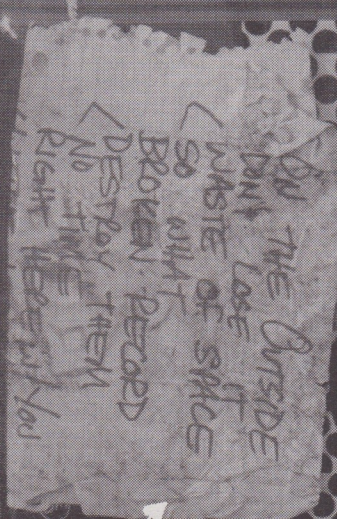 ON THE OUTSIDE
DON'T LOSE IT
WASTE OF SPACE
< SO WHAT
BROKEN RECORD
< DESTROY THEM
NO TIME
RIGHT HERE W/ YOU